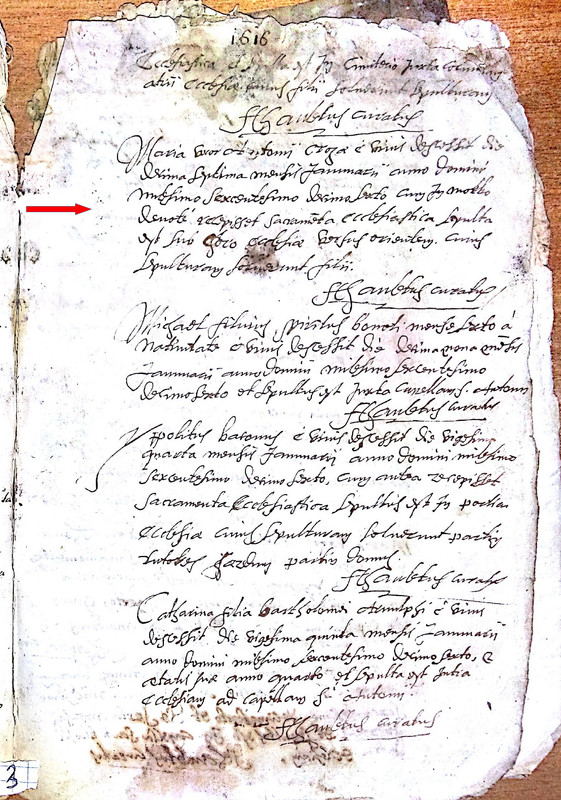 1616
Ecclesiastica et sepulta est in Cimiterio juxta
atrij Ecclesiæ, cuius filij solverunt sepulturam
curatus
Maria uxor Antonij e vivis descessit die
decima septima mensis Jannuarij anno Domini
milesimo sexcentesimo decimo sexto, cum in morbo
devote recepisset sacramenta Ecclesiastica sepulta
est sub Choro Ecclesiæ versus orientem, cuius
sepulturam solverunt filij.
curatus
Michael filius mense sexto à
nativitate e vivis descessit die decima nona mensis
Jannuarij anno Domini milesimo sexcentesimo
decimo sexto et sepultus est juxta Capellam S. Antonij
curatus
Ypolitus e vivis descessit die vigesima
quarta mensis Jannuarij anno Domini milesimo
sexcentesimo decimo sexto, cum antea recepisset
sacramenta Ecclesiastica sepultus est in porticu
Ecclesiæ cuius sepulturam solverunt partim
partim domus
curatus
Catharina filia Bartholomei e vivis
descessit die vigesima quinta mensis Jannuarij
anno Domini milesimo sexcentesimo decimo sexto, &
etatis suæ anno quarto et sepulta est intra
Ecclesiam ad Capellam S. Antonij
curatus
3